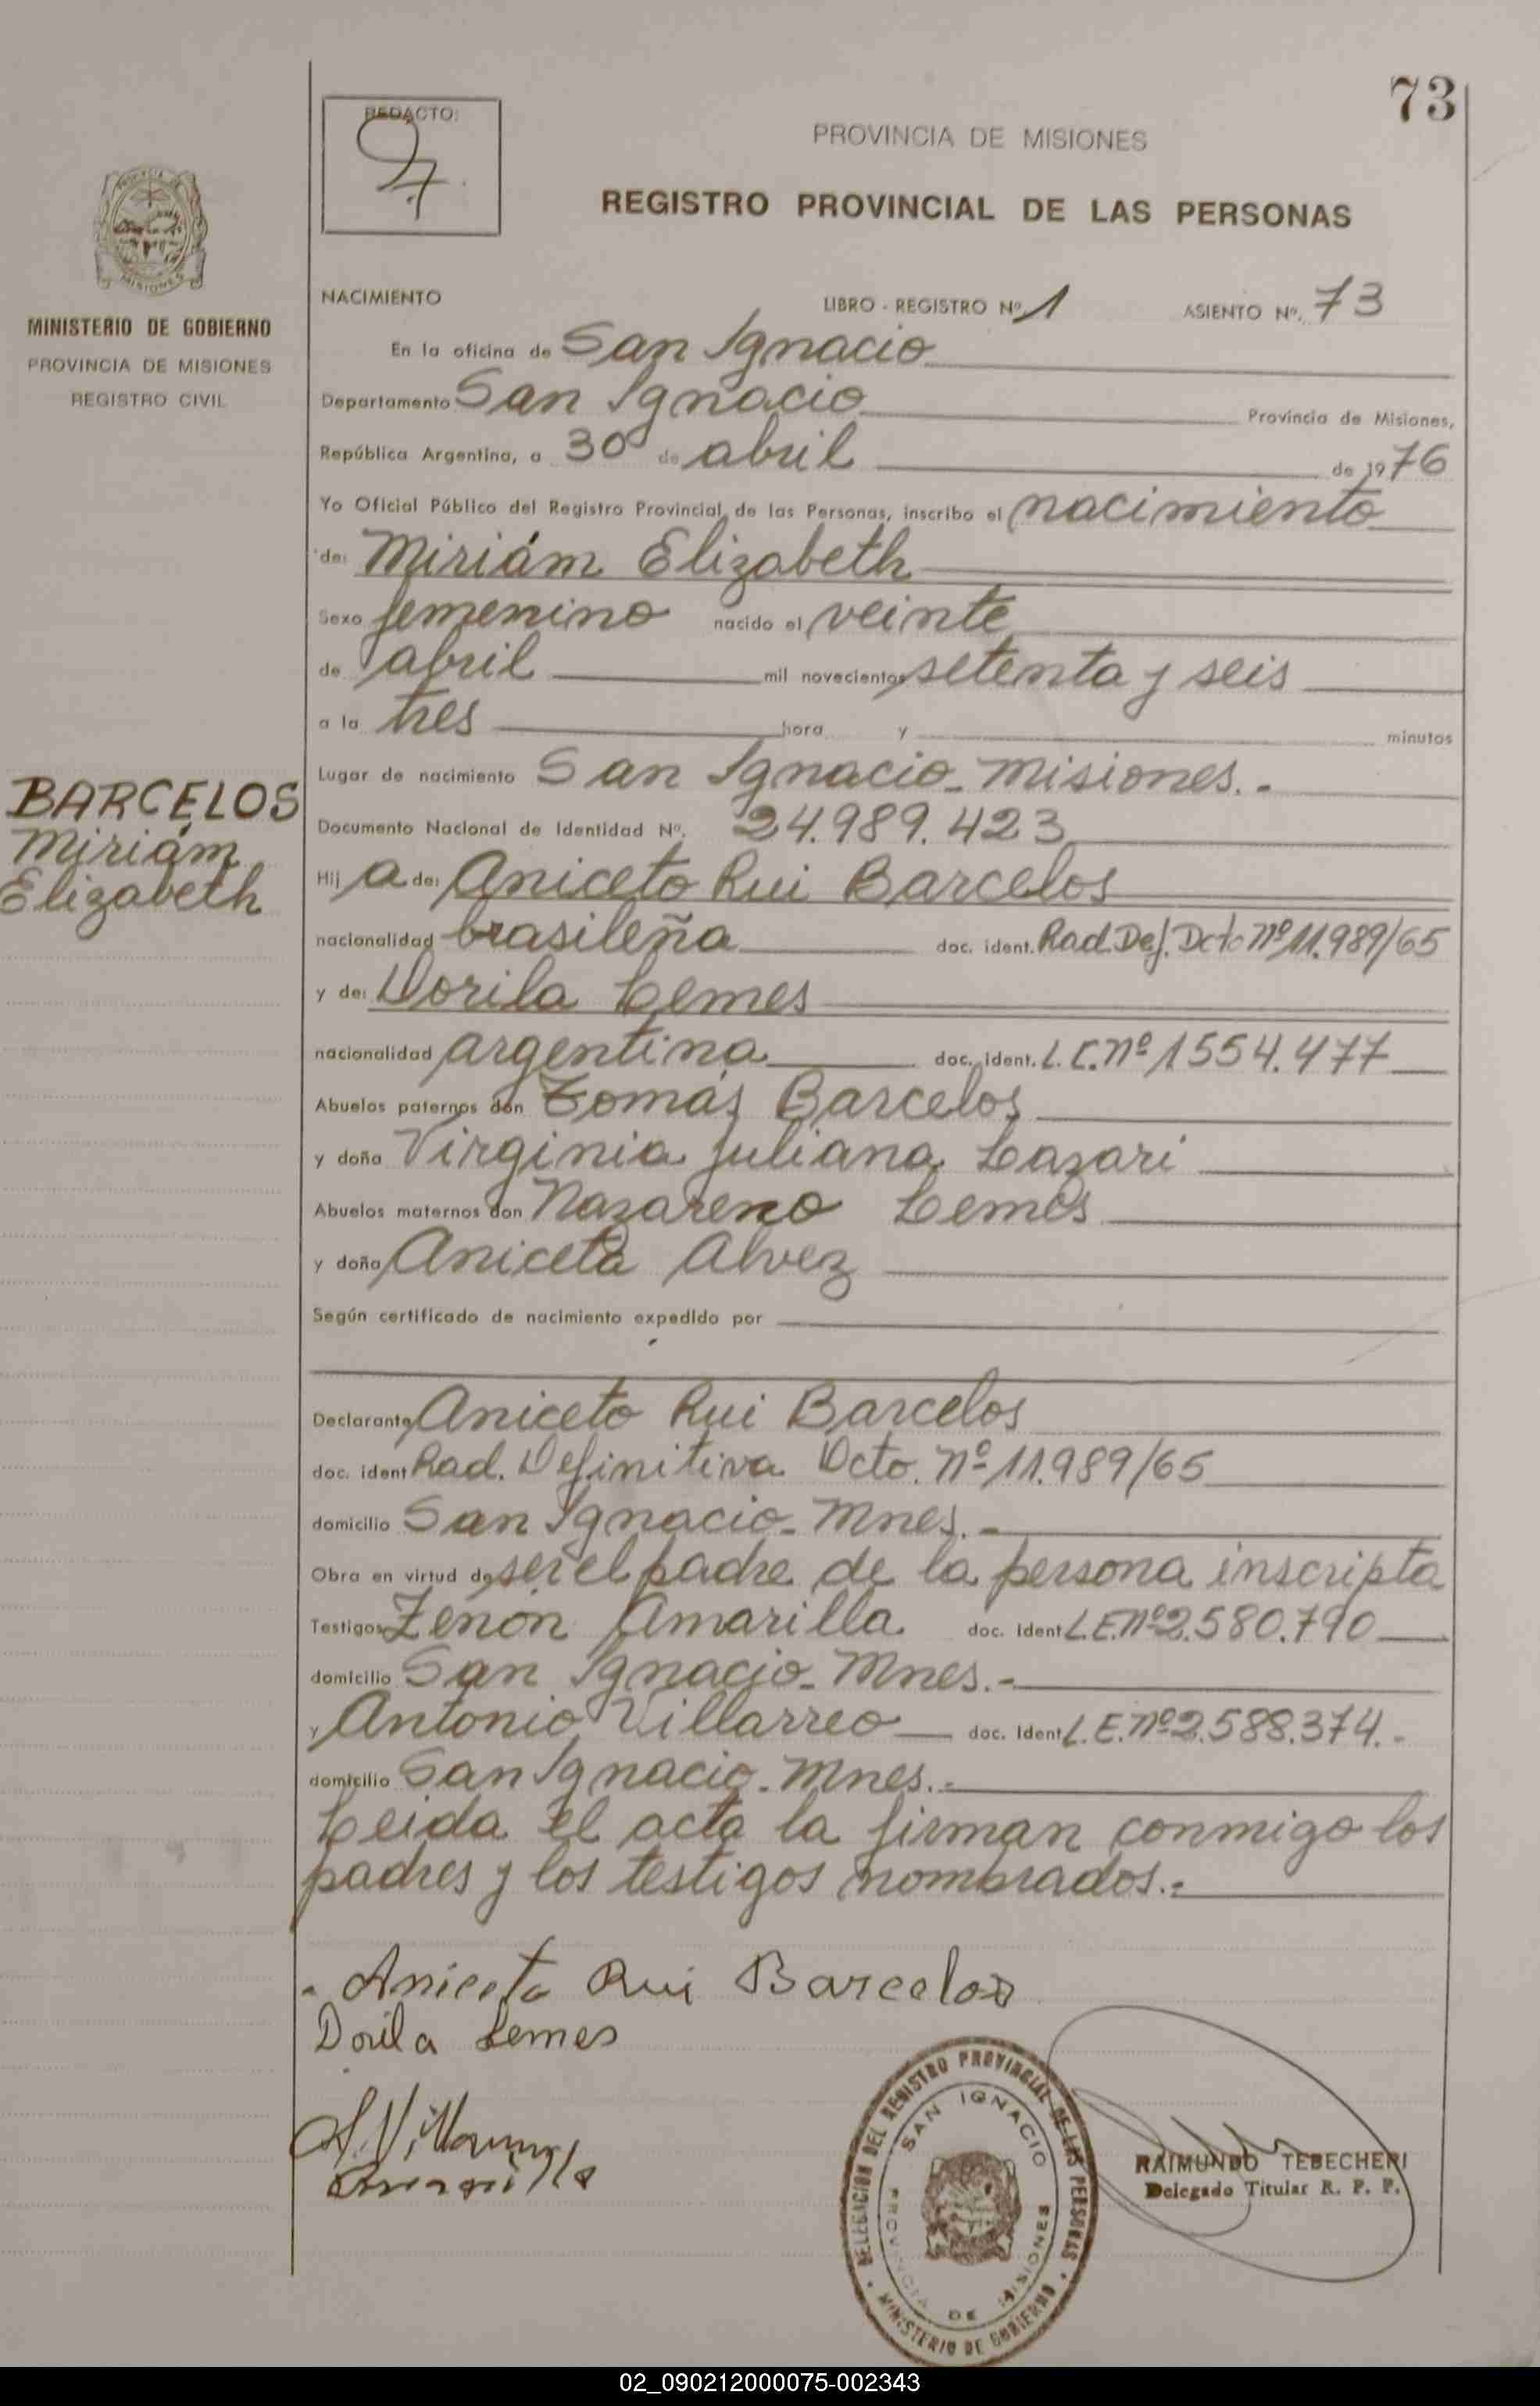 73
REDACTO:
PROVINCIA DE MISIONES
REGISTRO PROVINCIAL DE LAS PERSONAS
PROVINCIA DE
MISIONES
MINISTERIO DE GOBIERNO
PROVINCIA DE MISIONES
REGISTRO CIVIL
NACIMIENTO LIBRO - REGISTRO Nº 1 ASIENTO Nº. 73
En la oficina de San Ignacio
Departamento San Ignacio Provincia de Misiones,
República Argentina, a 30 de abril de 1976
Yo Oficial Público del Registro Provincial de las Personas, inscribo el nacimiento
de: Miriám Elizabeth
Sexo femenino nacido el veinte
de abril mil novecientos setenta y seis
a la tres hora y minutos
Lugar de nacimiento San Ignacio - Misiones. -
BARCELOS
Miriám
Elizabeth
Documento Nacional de Identidad Nº. 24.989.423
Hij a de: Aniceto Rui Barcelos
nacionalidad brasileña doc. ident. Rad. Def. Dcto nº 11.989/65
y de: Dorila Lemes
nacionalidad argentina doc. ident. L.C. nº 1554.477
Abuelos paternos don Tomás Barcelos
y doña Virginia Juliana Lazari
Abuelos maternos don Nazareno Lemes
y doña Aniceta Alvez
Según certificado de nacimiento expedido por
Declarante Aniceto Rui Barcelos
doc. ident Rad. Definitiva Dcto. nº 11.989/65
domicilio San Ignacio - Mnes. -
Obra en virtud de ser el padre de la persona inscripta
Testigos Zenón Amarilla doc. Ident L.E. nº 2.580.790
domicilio San Ignacio - Mnes. -
y Antonio Villarreo doc. Ident L.E. nº 2.588.374. -
domicilio San Ignacio - Mnes. -
Leida el acta la firman conmigo los
padres y los testigos nombrados. -
Aniceto Rui Barcelos
Dorila Lemes
DELEGACION DEL REGISTRO PROVINCIAL DE LAS PERSONAS
SAN IGNACIO
PROVINCIA DE MISIONES
MINISTERIO DE GOBIERNO
RAIMUNDO TEBECHERI
Delegado Titular R. P. P.
02_090212000075-002343